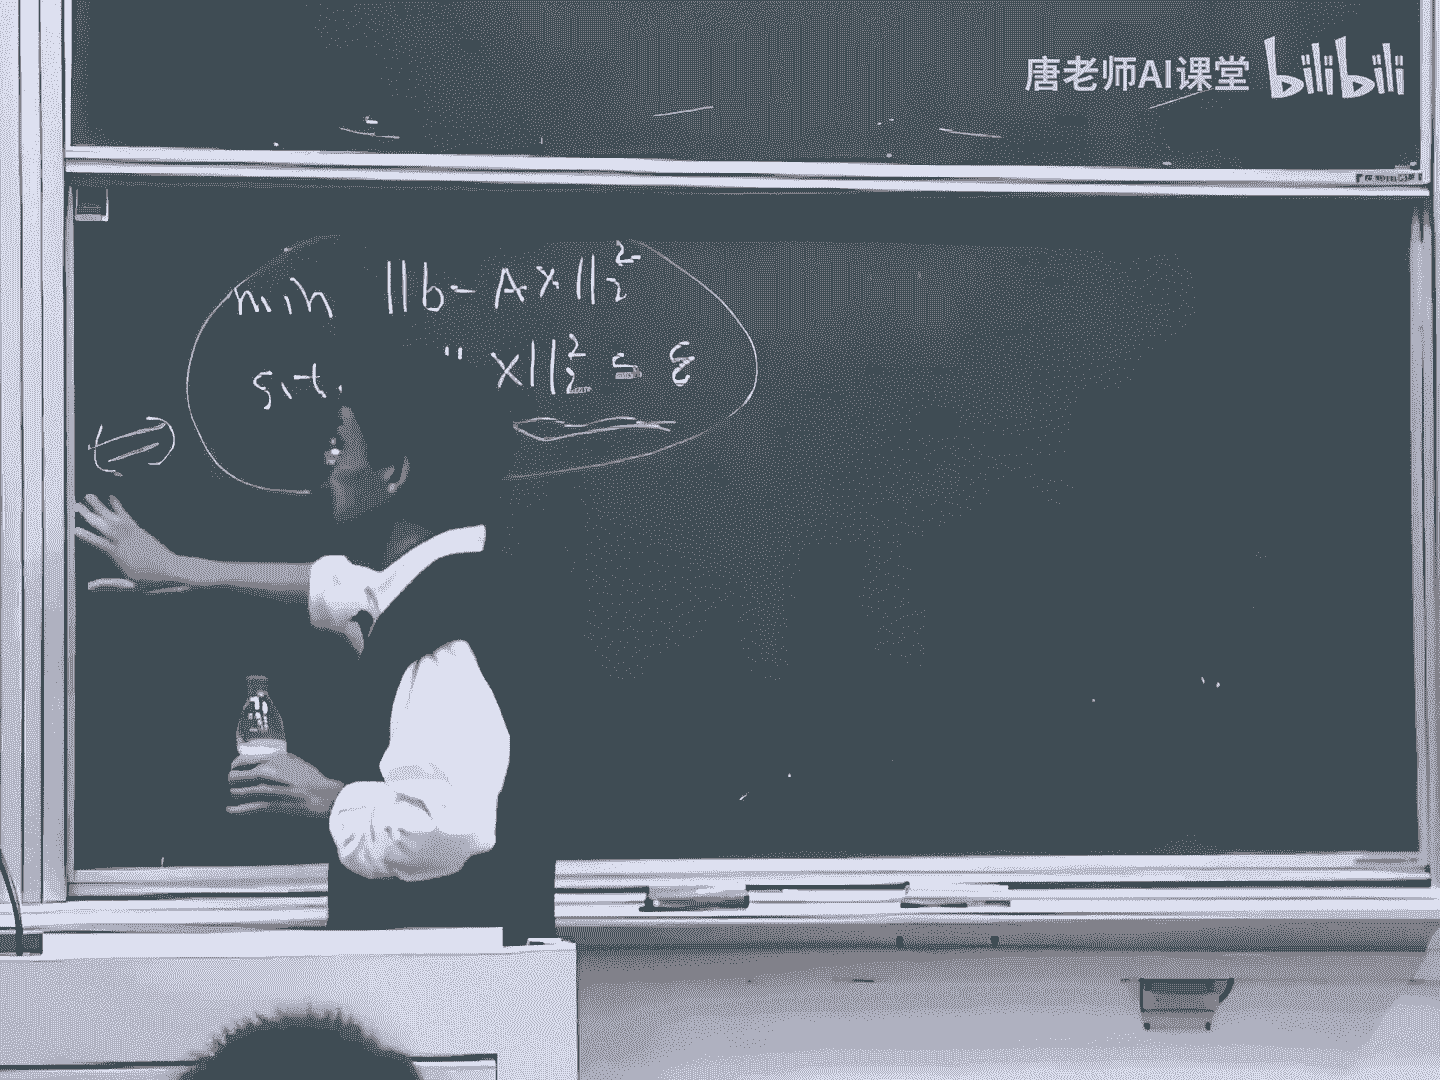 唐老师AI课堂 bilibili
min ||b-Ax||₂²
s.t. || x||₂² ≤ ε
⇔